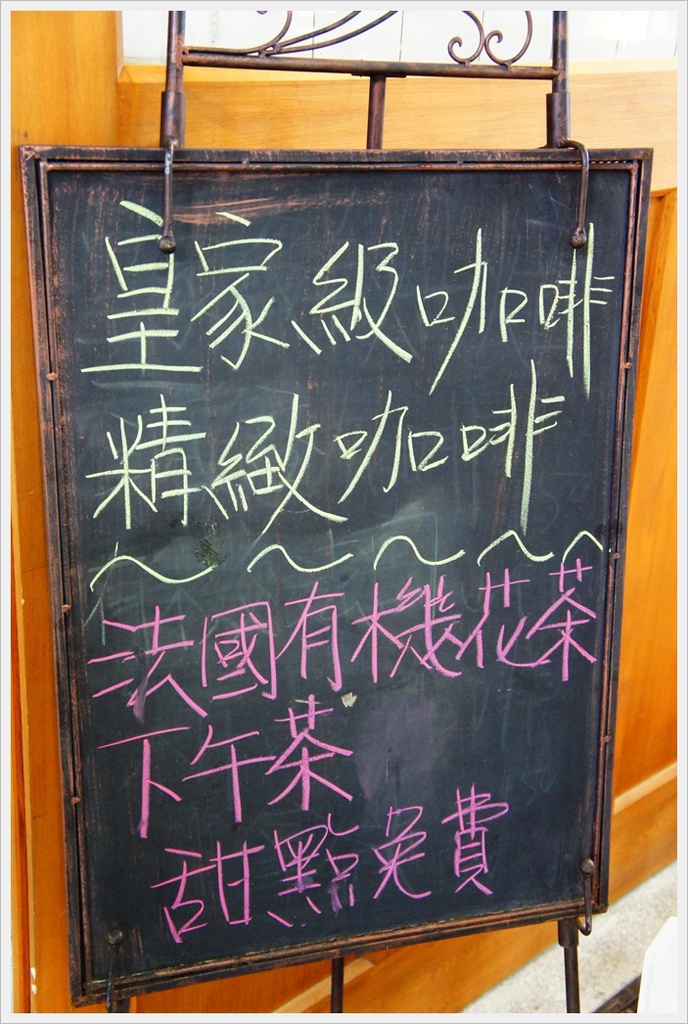 皇家級咖啡
精緻咖啡
～～～～～
法國有機花茶
下午茶
甜點免費